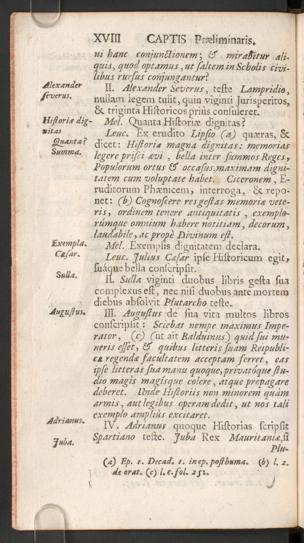 XVIII CAPTIS Præliminaris.
ni hanc conjunctionem; & mirabitur ali-
quis, quod optamus, ut saltem in Scholis civi-
libus rursus conjungantur?
Alexander severus.
II. Alexander Severus, teste Lampridio,
nullam legem tulit, quin viginti Jurisperitos,
& triginta Historicos prius consuleret.
Historiæ dig-
nitas
Mel. Quanta Historiæ dignitas?
Quanta?
Summa.
Leuc. Ex erudito Lipsio (a) quæras, &
dicet: Historia magna dignitas: memorias
legere prisci ævi, bella inter summos Reges,
Populorum ortus & occasus, maximam digni-
tatem cum voluptate habet. Ciceronem, E-
ruditorum Phænicem, interroga, & repo-
net: (b) Cognoscere res gestas memoria vete-
ris, ordinem tenere antiquitatis, exemplo-
rúmque omnium habere notitiam, decorum,
laudabile, ac propè Divinum est.
Exempla.
Mel. Exemplis dignitatem declara.
Cæsar.
Leuc. Julius Cæsar ipse Historicum egit,
suáque bella conscripsit.
Sulla.
II. Sulla viginti duobus libris gesta sua
complexus est, nec nisi duobus ante mortem
diebus absolvit Plutarcho teste.
Augustus.
III. Augustus de sua vita multos libros
conscripsit: Sciebat nempe maximus Impe-
rator, (c) (ut ait Balduinus) quid sui mu-
neris esset, & quibus litteris suam Reipubli-
cæ regendæ facultatem acceptam ferret, eas
ipse litteras sua manu quoque, privatóque stu-
dio magis magisque colere, atque propagare
deberet. Unde Historiis non minorem quàm
armis, aut legibus operam dedit, ut nos tali
exemplo ampliùs excitaret.
Adrianus.
IV. Adrianus quoque Historias scripsit
Juba.
Spartiano teste. Juba Rex Mauritaniæ, si
Plu-
(a) Ep. 1. Decad. 1. in ep. posthuma. (b) l. 2.
de orat. (c) l. c. fol. 252.